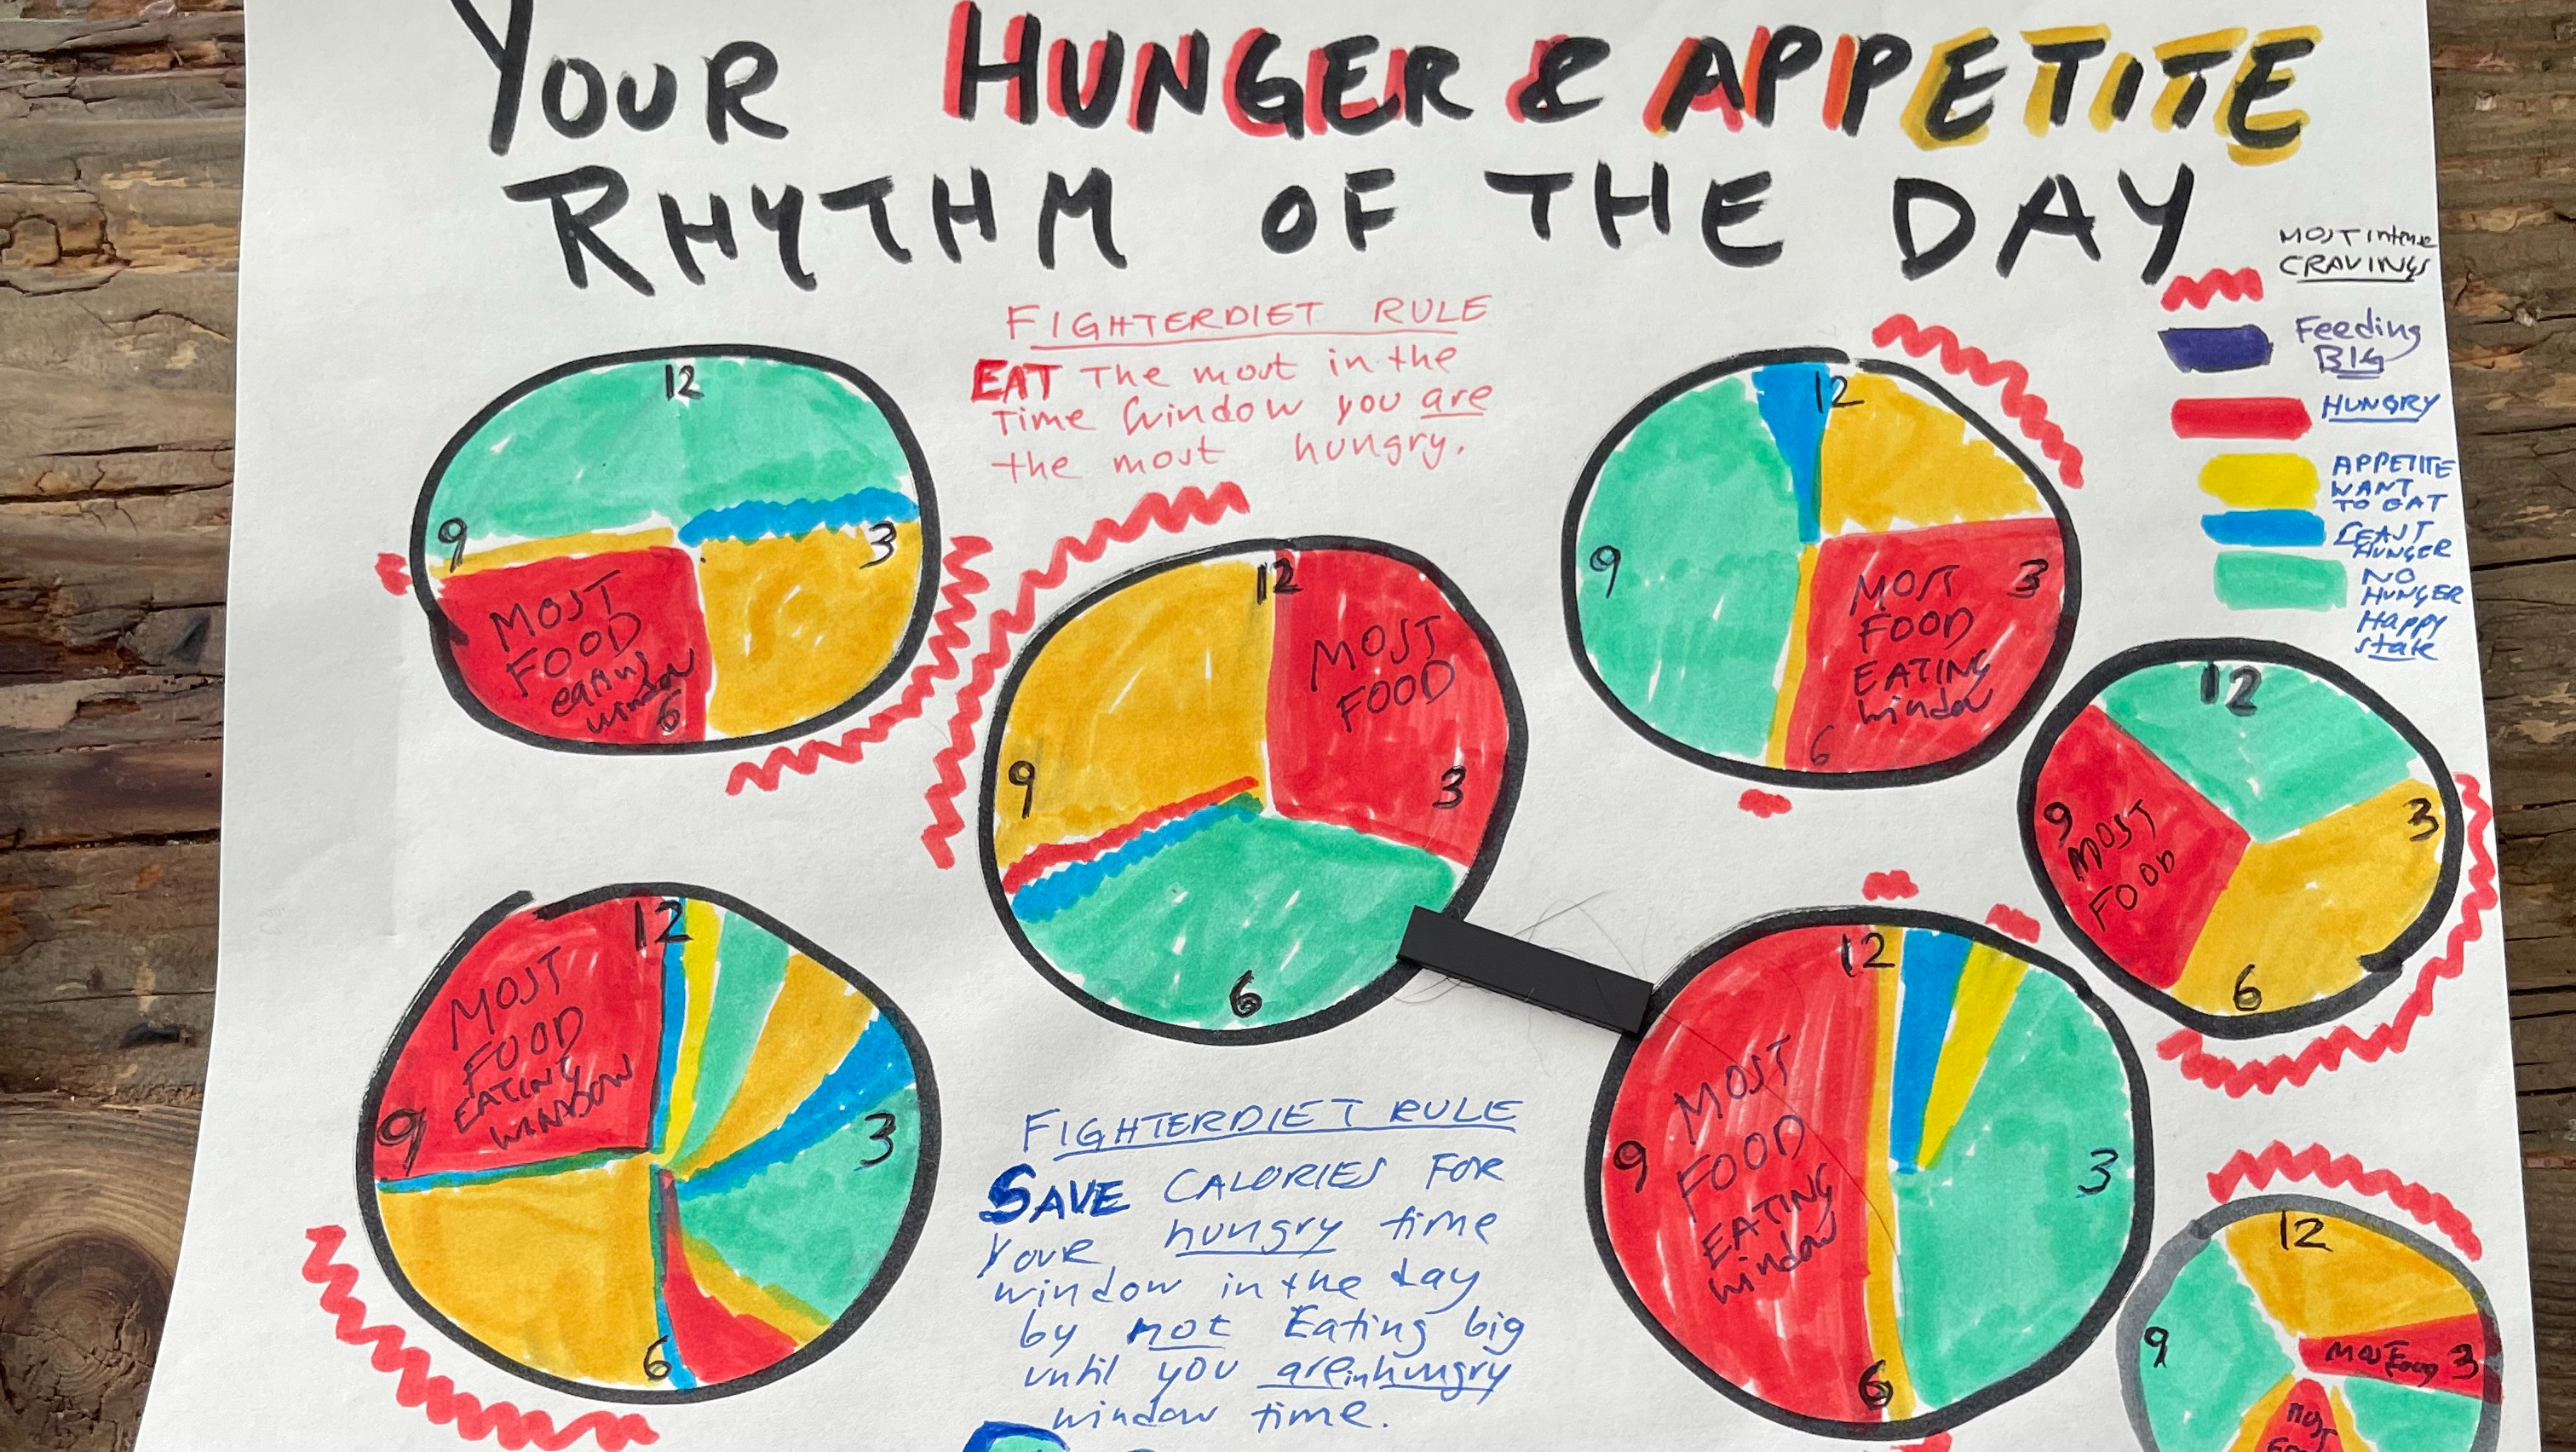 YOUR HUNGER & APPETITE
RHYTHM OF THE DAY
MOST intense
CRAVINGS
Feeding
BIG
HUNGRY
APPETITE
WANT
TO EAT
LEAST
HUNGER
NO
HUNGER
Happy
state
FIGHTERDIET RULE
EAT The most in the
Time Window you are
the most hungry.
12
9
3
MOST
FOOD
eating
window
6
12
MOST
FOOD
9
3
6
12
9
3
MOST
FOOD
EATING
window
6
12
9
3
MOST
FOOD
6
12
MOST
FOOD
EATING
WINDOW
9
3
6
12
MOST
FOOD
EATING
window
9
3
6
FIGHTERDIET RULE
SAVE CALORIES FOR
YOUR hungry time
window in the day
by not Eating big
until you are in hungry
window time.
12
9
3